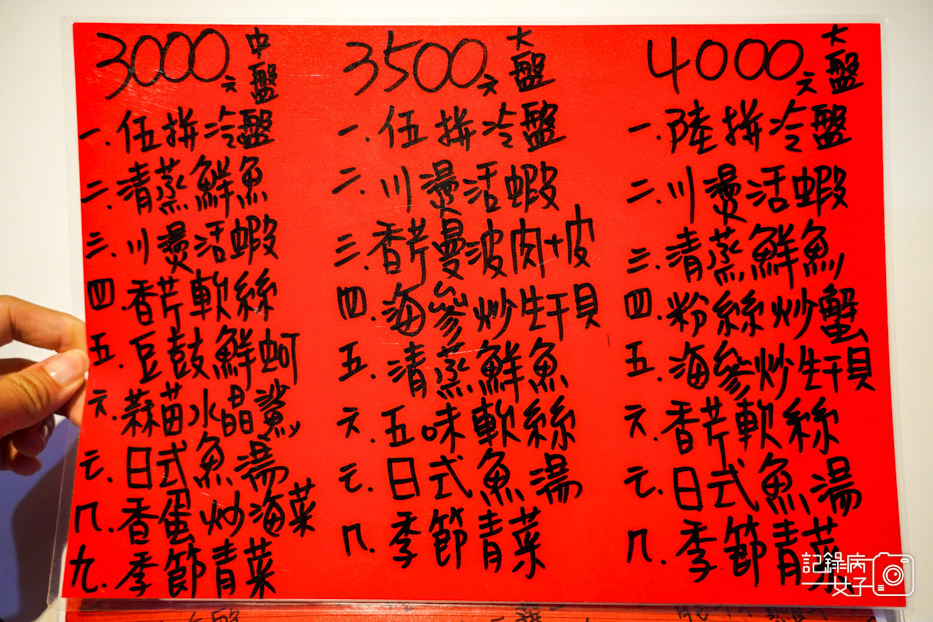 3000元 中盤
一. 伍拼冷盤
二. 清蒸鮮魚
三. 川燙活蝦
四. 香芹軟絲
五. 豆鼓鮮蚵
六. 蒜苗水晶鯊
七. 日式魚湯
八. 香蛋炒海菜
九. 季節青菜
3500元 大盤
一. 伍拼冷盤
二. 川燙活蝦
三. 香芹曼波肉+皮
四. 海參炒生干貝
五. 清蒸鮮魚
六. 五味軟絲
七. 日式魚湯
八. 季節青菜
4000元 大盤
一. 陸拼冷盤
二. 川燙活蝦
三. 清蒸鮮魚
四. 粉絲炒蟹
五. 海參炒生干貝
六. 香芹軟絲
七. 日式魚湯
八. 季節青菜
記錄病
女子